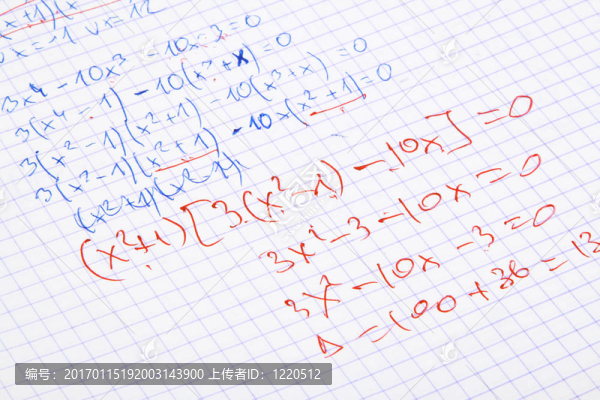 x+1)(x
x=-1 v x=12
3x⁴-10x³-10x-3=0
3(x⁴-1)-10(x³+x)=0
3(x²-1)(x²+1)-10(x³+x)=0
3(x²-1)(x²+1)-10x(x²+1)=0
(x²+1)(x²-1)
(x²+1)[3(x²-1)-10x]=0
3x²-3-10x=0
3x²-10x-3=0
Δ=100+36=13
编号：20170115192003143900 上传者ID：1220512